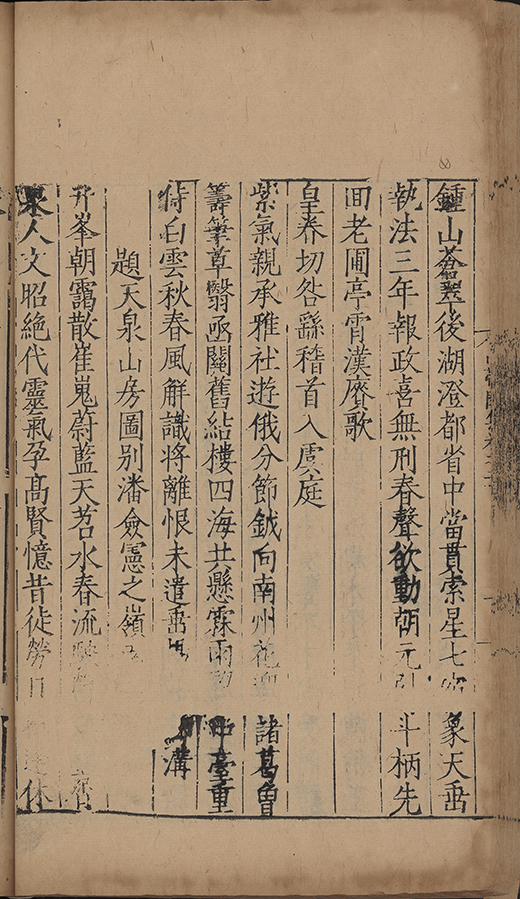 鍾山蒼翠後湖澄都省中當貫索星七 象天垂
執法三年報政喜無刑春聲欲動朝元 斗柄先
回老圃亭霄漢賡歌
皇春切咎繇稽首入虞庭
紫氣親承雅社遊俄分節鉞向南州花 諸葛曾
籌筆草翳函關舊結樓四海共懸霖雨 臺重
倚白雲秋春風解識將離恨未遣垂 溝
題天泉山房圖別潘僉憲之嶺
峯朝靄散崔嵬蔚藍天若水春流
泉人文昭絕代靈氣孕高賢憶昔徒勞 休